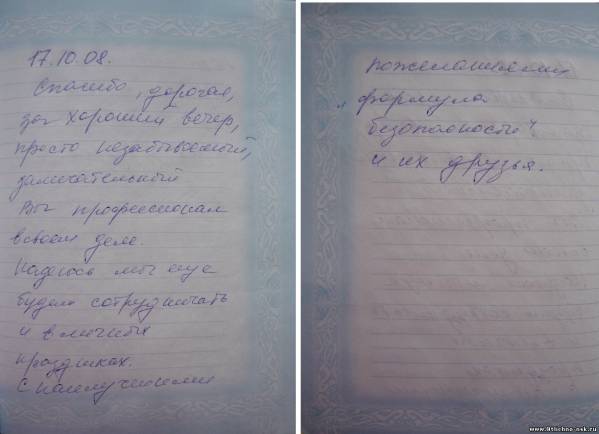 17.10.08.
Спасибо, дорогая,
за хороший вечер,
просто незабываемый,
замечательный
Вы профессионал
в своем деле.
Надеюсь мы еще
будем сотрудничать
и в личных
праздниках.
С наилучшими
пожеланиями
"формула
безопасности"
и их друзья.